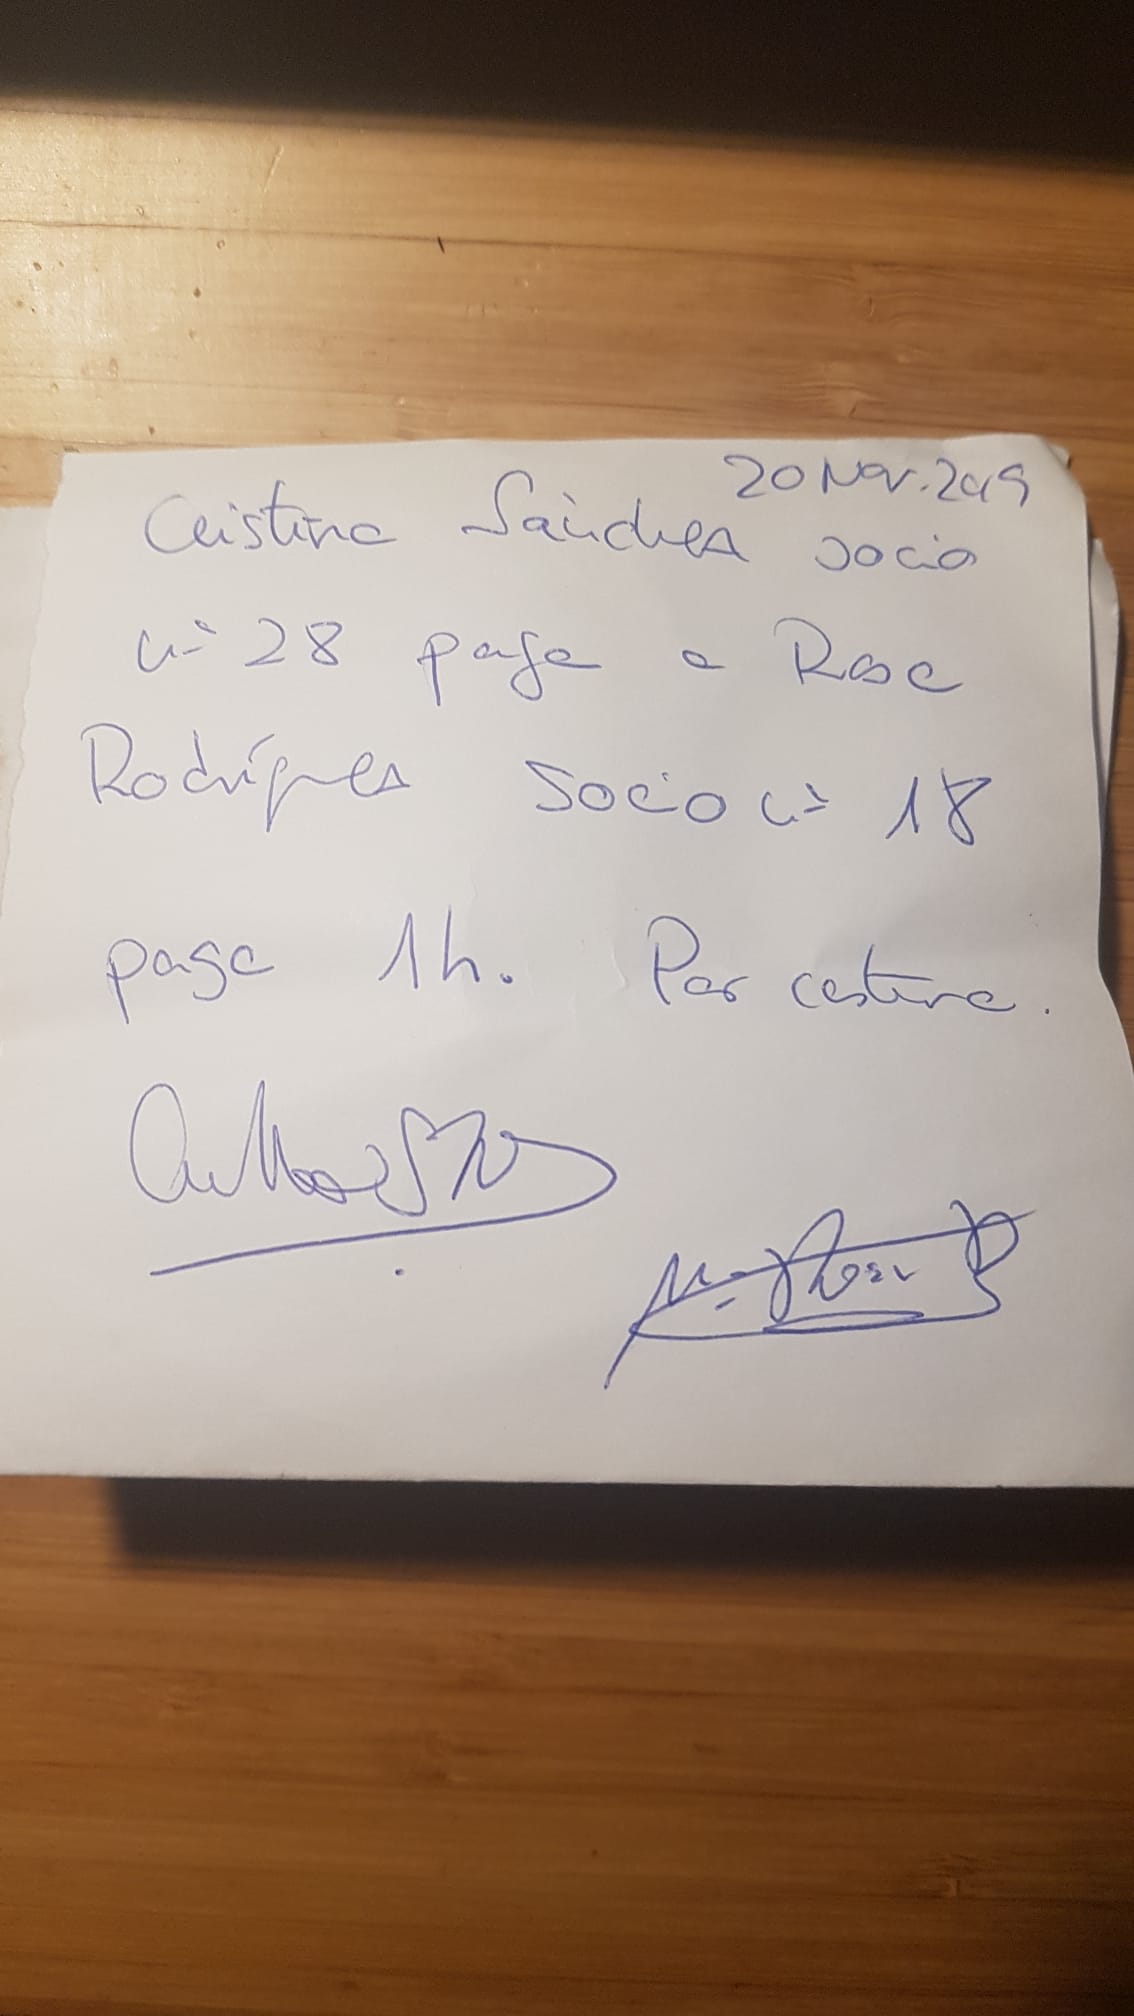 20 Nov. 2019
Cristina Sánchez socio
nº 28 paga a Rosa
Rodríguez socio nº 18
paga 1h. Por costura.
Mª Rosa